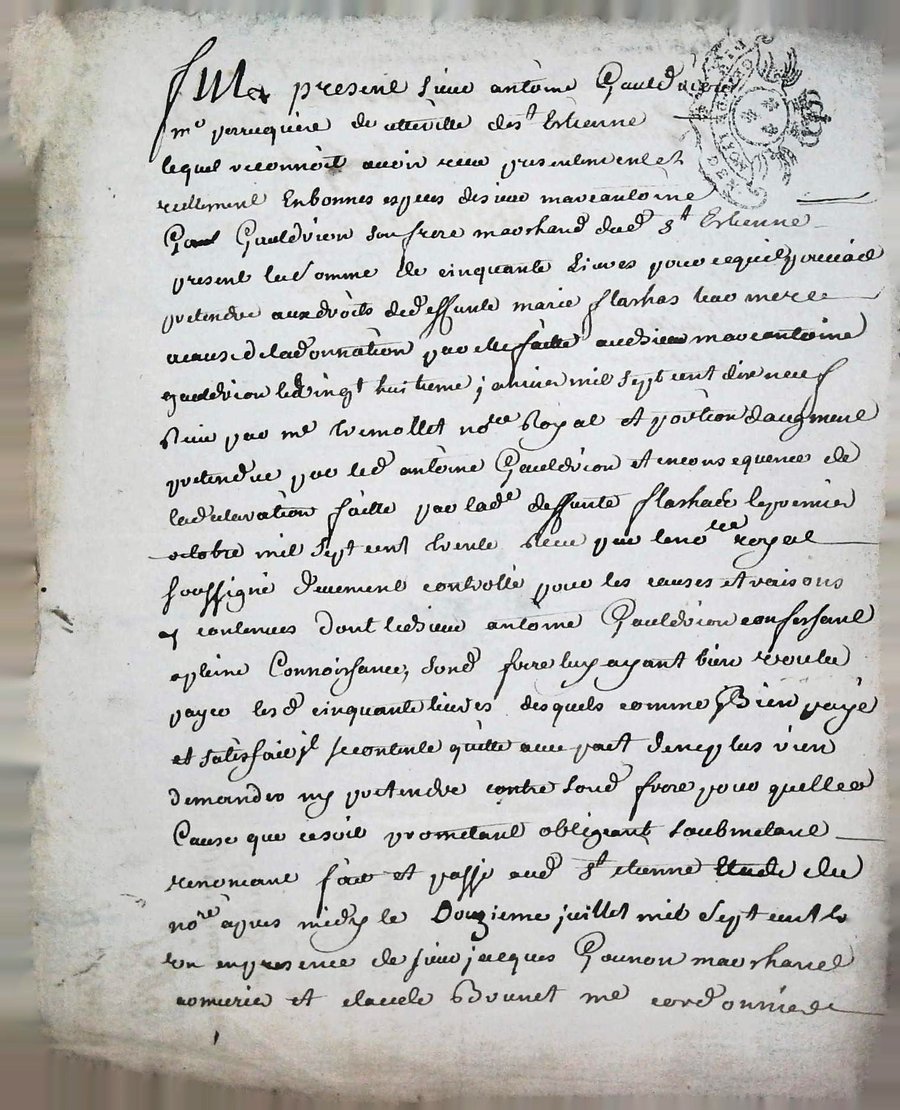 Fut present sieur antoine Gauldvion
me perruquiere de cette ville de st Estienne
lequel reconnoit avoir receu presentement et
reellement En bonnes especes de sieur marcantoine
Gaul Gauldvion son frere marchand dud st Estienne
present la somme de cinquante Livres pour ce quil pouvoit
pretendre aux droits de deffunte marie flachas leur mere
a cause de la donnation par elle faitte aud sieur marcantoine
gauldvion le vingt huitieme janvier mil sept cent dix neuf
Receu par me tremollet nore Royal et portion daugment
pretendue par led antoine Gauldvion et en consequence de
la declaration faitte par lade deffunte flachas le premier
octobre mil sept cent trente Receu par le nore royal
soussigné duement controllé pour les causes et raisons
y contenues Dont led sieur antoine Gauldvion confessant
a pleine Connoissance, sond frere luy ayant bien voulu
payer lesd cinquante livres desquels comme Bien payé
et satisfait jl se contente quitte avec pact de ne plus rien
demander ny pretendre contre sond frere pour quelle
Cause que ce soit prometant obligeant soubmetant
renomant fait et passé aud st etienne Etude du
nore apres midy le Douzieme juillet mil sept cent
en presence de sieur jacques Gounon marchand
armurier et claude Bounet me cordonnier